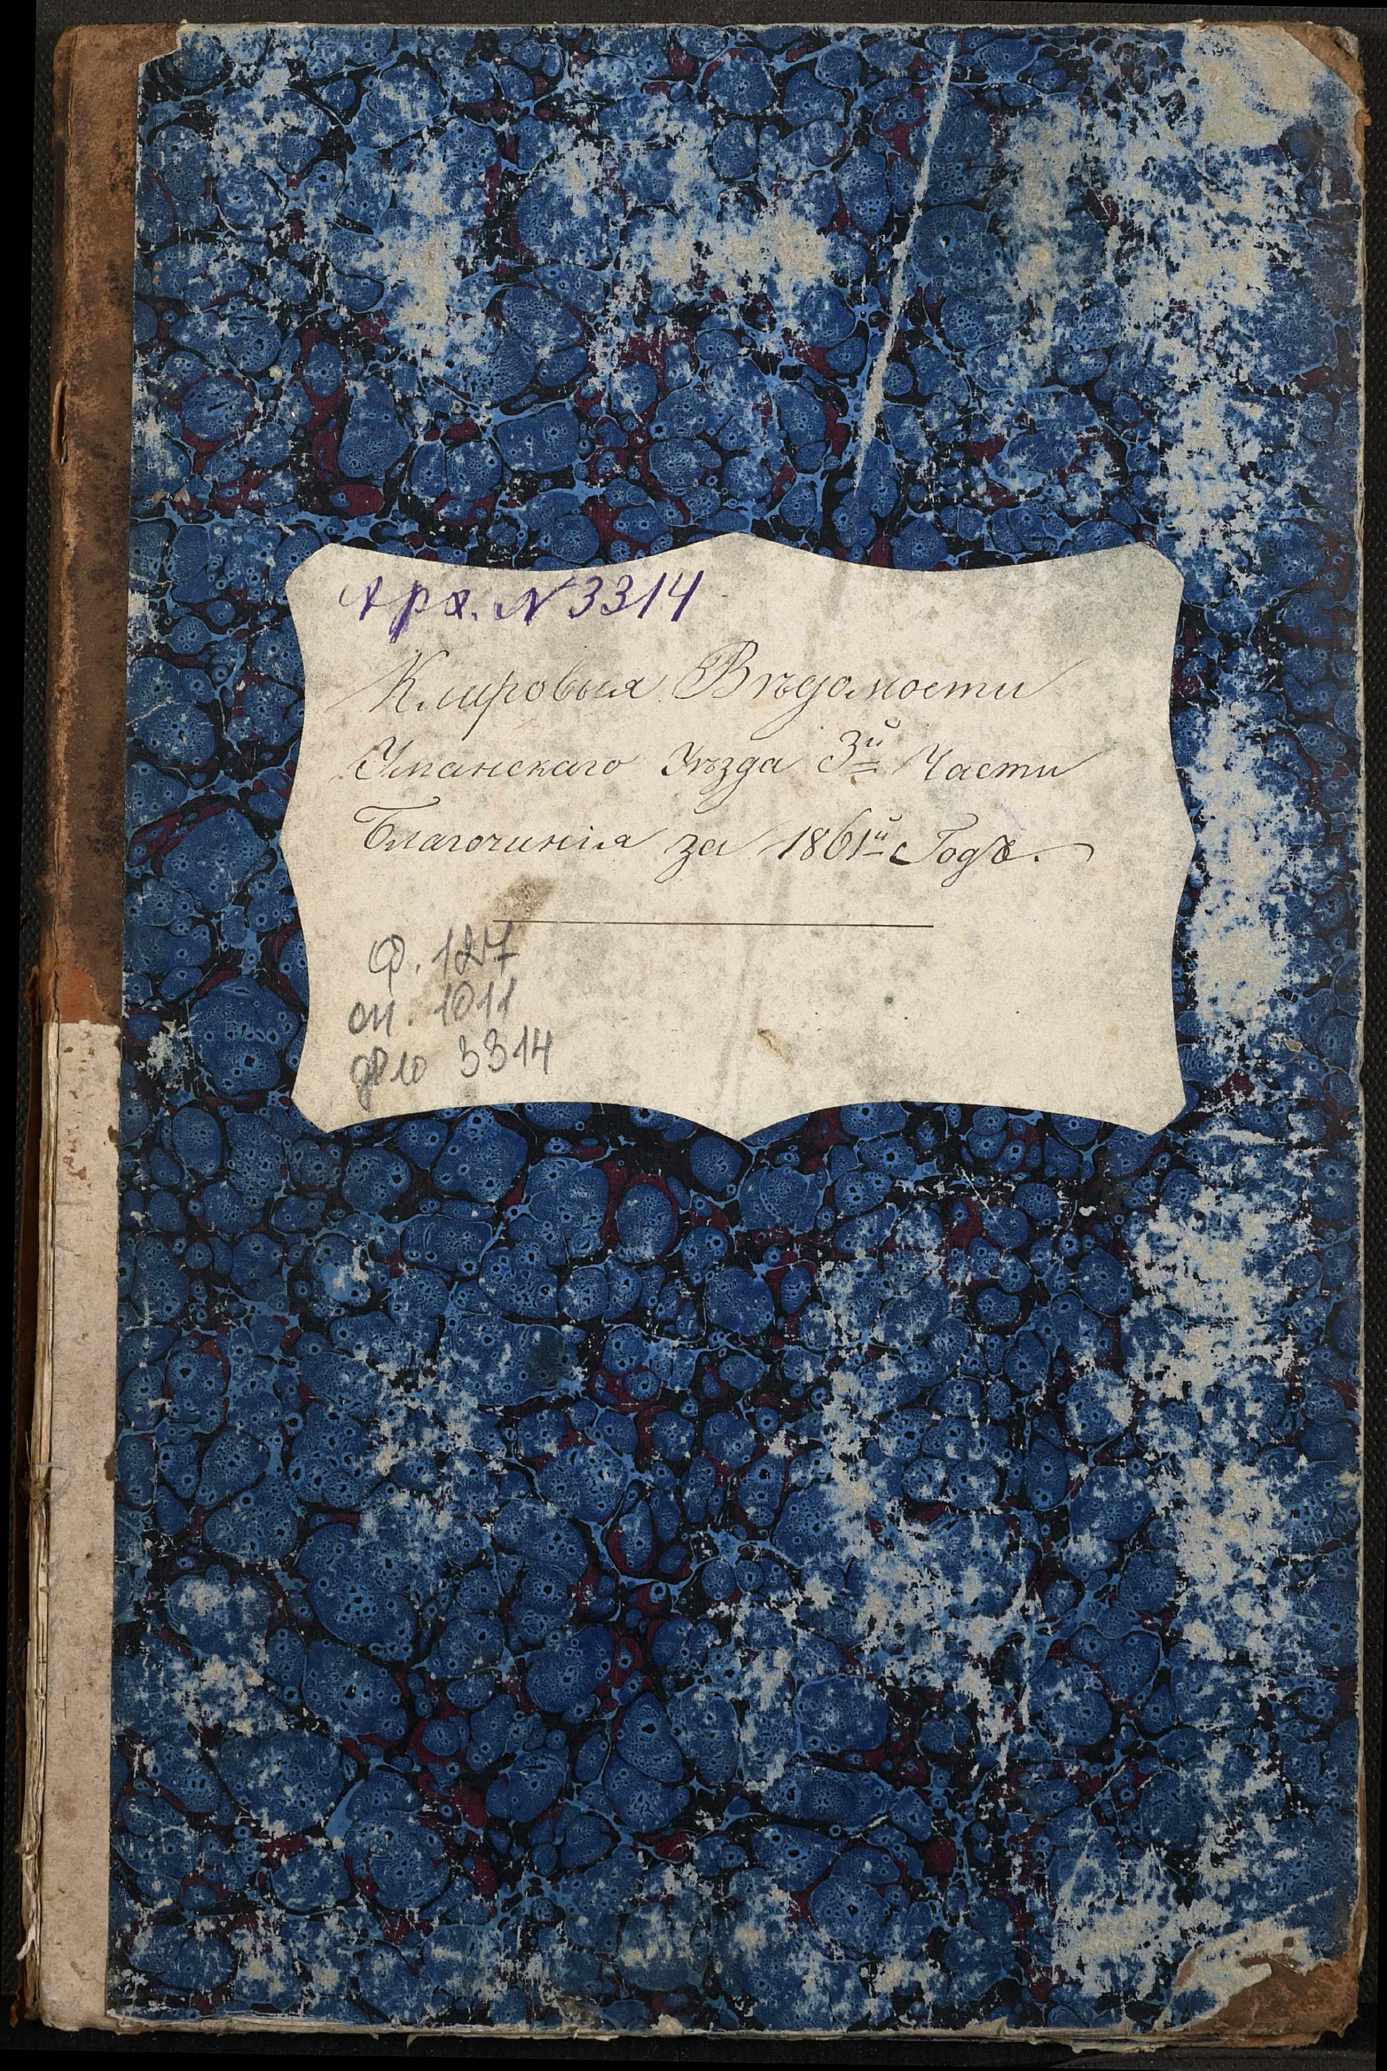 Арх. № 3314
Клировыя Вѣдомости
Уманскаго Уѣзда 3й Части
Благочинія за 1861й Годъ.
Ф. 127
оп. 1011
дѣло 3314